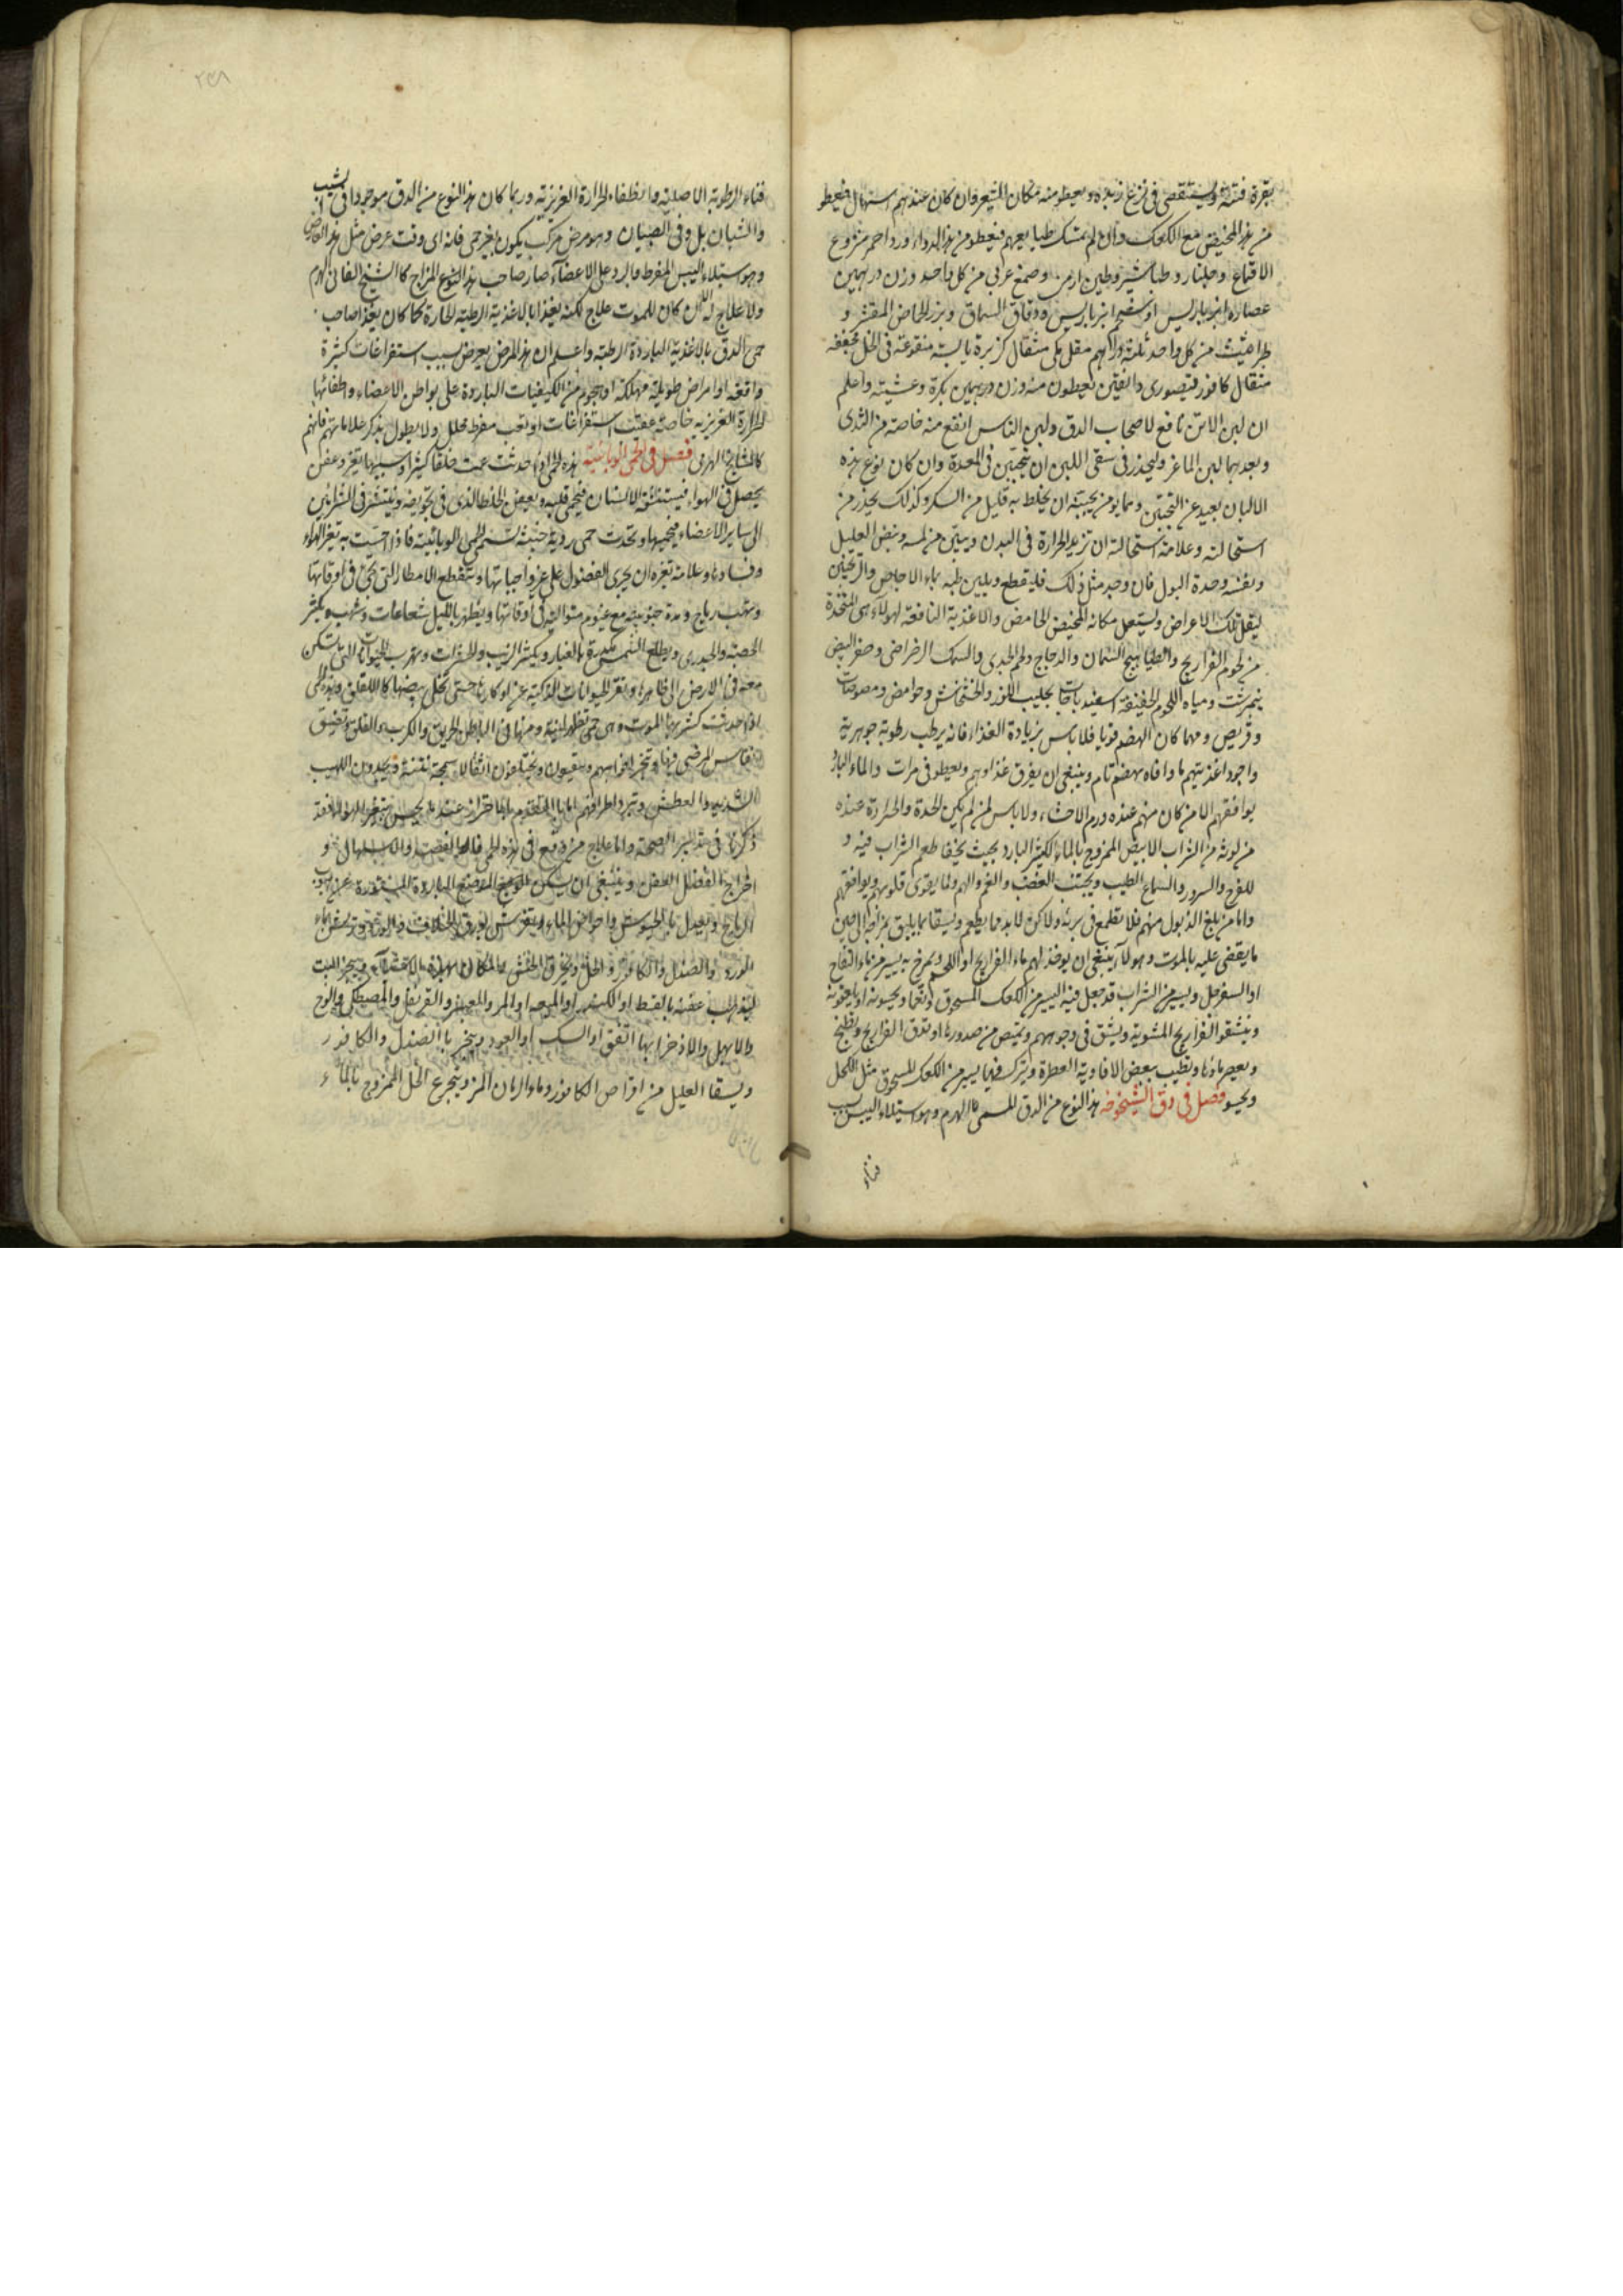 بقرة فتية ويستقصى فى نزع زبده ويعطو منه مكان الشعير وان كان عندهم استهال فيعطو
من هذا المخيض مع الكعك وان لم يمسك طبايعهم فيعطو من هذا الدواء ورد احمر منزوع
الاقماع وجلنار وطباشير وطين ارمنى وصمغ عربى من كل واحد وزن درهمين
عصاره انبرباريس او سفيح انبرباريس ودقاق السماق وبزر الحماض المقشر و
طراثيث من كل واحد ثلثة دراهم مقل مكى مثقال كزبرة يابسة منقوعة فى الخل مجففه
مثقال كافور قيصورى دانقين يعطون منه وزن درهمين بكرة وعشية واعلم
ان لبن الاتن نافع لاصحاب الدق ولبن الناس انفع منه خاصة من الثدى
وبعدهما لبن الماعز وليحذر فى سقى اللبن ان يتجبن فى المعدة وان كان نوع هذه
الالبان بعيد عن التجبن ومما يؤمن تجبنه ان يخلط به قليل من السكر وكذلك يحذر من
استحالته وعلامة استحالته ان تزيد الحرارة فى البدن ويتبين من لمسه ونبض العليل
ونفسه وحدة البول فان وجد مثل ذلك فليقطع ويلين طبعه بماء الاجاص والترنجبين
ليقل تلك الاعراض ويستعمل مكانه المخيض الحامض والاغذية النافعة لهولاء هى المتخذة
من لحوم الفراريج والطياهيج السمان والدجاج ولحم الجدى والسمك الرضراضى وصفر البيض
نيمبرشت ومياه اللحوم الخفيفة اسفيدباجات بحليب اللوز والخشخاش وحوامض ومصوصات
وقريص ومهما كان الهضم قويا فلا باس بزيادة الغذاء فانه يرطب رطوبة جوهرية
واجود اغذيتهم ما وافاه هضم تام وينبغى ان يفرق غذاوهم ويعطو فى مرات والماء البارد
يوافقهم الا من كان منهم عنده ورم الاحشاء ولا باس لمن لم يكن الحدة والحرارة عنده
من لوثة من الشراب الابيض الممزوج بالماء الكثير البارد بحيث يخفا طعم الشراب فيه و
للفرح والسرور والسماع الطيب ويجتنب الغضب والغم والهم ومما يقوى قلوبهم ويوافقهم
واما من بلغ الذبول منهم فلا يطمع فى برئه ولاكن لابد مما يطعم ويسقا مما يليق بمزاجه الى حين
ما يقضى عليه بالموت وهولاء ينبغى ان يوخذ لهم ماء الفراريج او اللحم ويمزج به يسير من ماء التفاح
او السفرجل ويسير من الشراب قد جعل فيه اليسير من الكعك المسحوق
وينشقو الفراريج المشوية ويشق فى وجوههم ويمتص من صدورها او تدق الفراريج وتطبخ
ويعصر ماؤها ويطيب ببعض الافاوية العطرة ويترك فيها يسير من الكعك المسحوق مثل الكحل
ويحسو فصل فى دق الشيخوخه هذا النوع من الدق المسمى بالهرم وهو استيلاء اليبس بسبب
فناء
٢٣٨
فناء الرطوبة الاصلية وانطفاء الحرارة الغريزية وربما كان هذا النوع من الدق موجودا فى الشيب
والشبان بل وفى الصبيان وهو مرض مركب يكون بغير حمى فانه اى وقت عرض مثل هذا العارض
وهو استيلاء اليبس المفرط والبرد على الاعضآء صار صاحب هذا النوع المزاج كالشيخ الفانى الهرم
ولا علاج له ان كان للموت علاج لكنه يغذا بالاغذية الرطبة الحارة كما كان يغذا صاحب
حمى الدق بالاغذية الباردة الرطبة واعلم ان هذا المرض يعرض بسبب استفراغات كثيرة
واقعه او امراض طويلة مهلكة او هجوم من الكيفيات الباردة على بواطن الاعضاء واطفائها
الحرارة الغريزيه خاصة عقيب استفراغات او تعب مفرط محلل ولا يطول بذكر علاماتهم فانهم
كالمشايخ الهرمى فصل فى الحمى الوبائية هذه الحمى اذا حدثت عمت خلقا كثيرا وسببها تغير وعفن
يحصل فى الهواء فيستنشقه الانسان فيحمى قلبه وبعفن الخلط الذى فى تجويفه وينتشر فى الشرائين
الى ساير الاعضاء فيحميها وتحدث حمى رديه خبيثة تسمى الحمى الوبائية فاذا حسيت به تغير الهواء
وفساده وعلامة تغيره ان يجرى الفصول على غير واجباتها وتنقطع الامطار التى تجئ فى اوقاتها
وتهب رياح ومدة جنوبية مع غيوم متوالية فى اوقاتها ويظهر بالليل شعاعات وشهب ويكثر
الحصبة والجدرى ويطلع الشمس مكدرة بالغبار ويكثر الذباب والحشرات وتهرب الحيوانات التى تسكن
معه فى الارض الى ظاهرها وتفر الحيوانات الذكية عن اوكارها حتى تخلى بيضها كاللقلق وهذه الحمى
اذا حدثت كثر بها الموت وهى حمى تظهر لينة ومنها فى الباطن الحريق والكرب والقلق وتضيق
انفاس المرضى فيها وتبخر افواههم ويختلفون اثقالا سمجة نتنة ويجدون اللهيب
الشديد والعطش وتبرد اطرافهم اما التقدم بالاحتراز عند ما يحس بتغير الهواء فقد
ذكرنا فى تدبير الصحة واما علاج من وقع فى هذه الحمى فالفصد والاسهال و
اخراج الفضل العفن وينبغى ان يسكن المواضع الباردة المستورة عن هبوب
الرياح ويعدل بالخيوش واحواض الماء ويفرش بورق الخلاف والورد ويرش بماء
الورد والصندل والكافور والخل
ليذهب عفنه بالقسط او الكندر او الميعه او المر والعنبر والقرنفل والمصطكى والوج
والابهل والاذخر ايها اتفق او السك او العود ويبخر بالصندل والكافور
ويسقا العليل من اقراص الكافور وماء الرمان المز ويتجرع الخل الممزوج بالماء